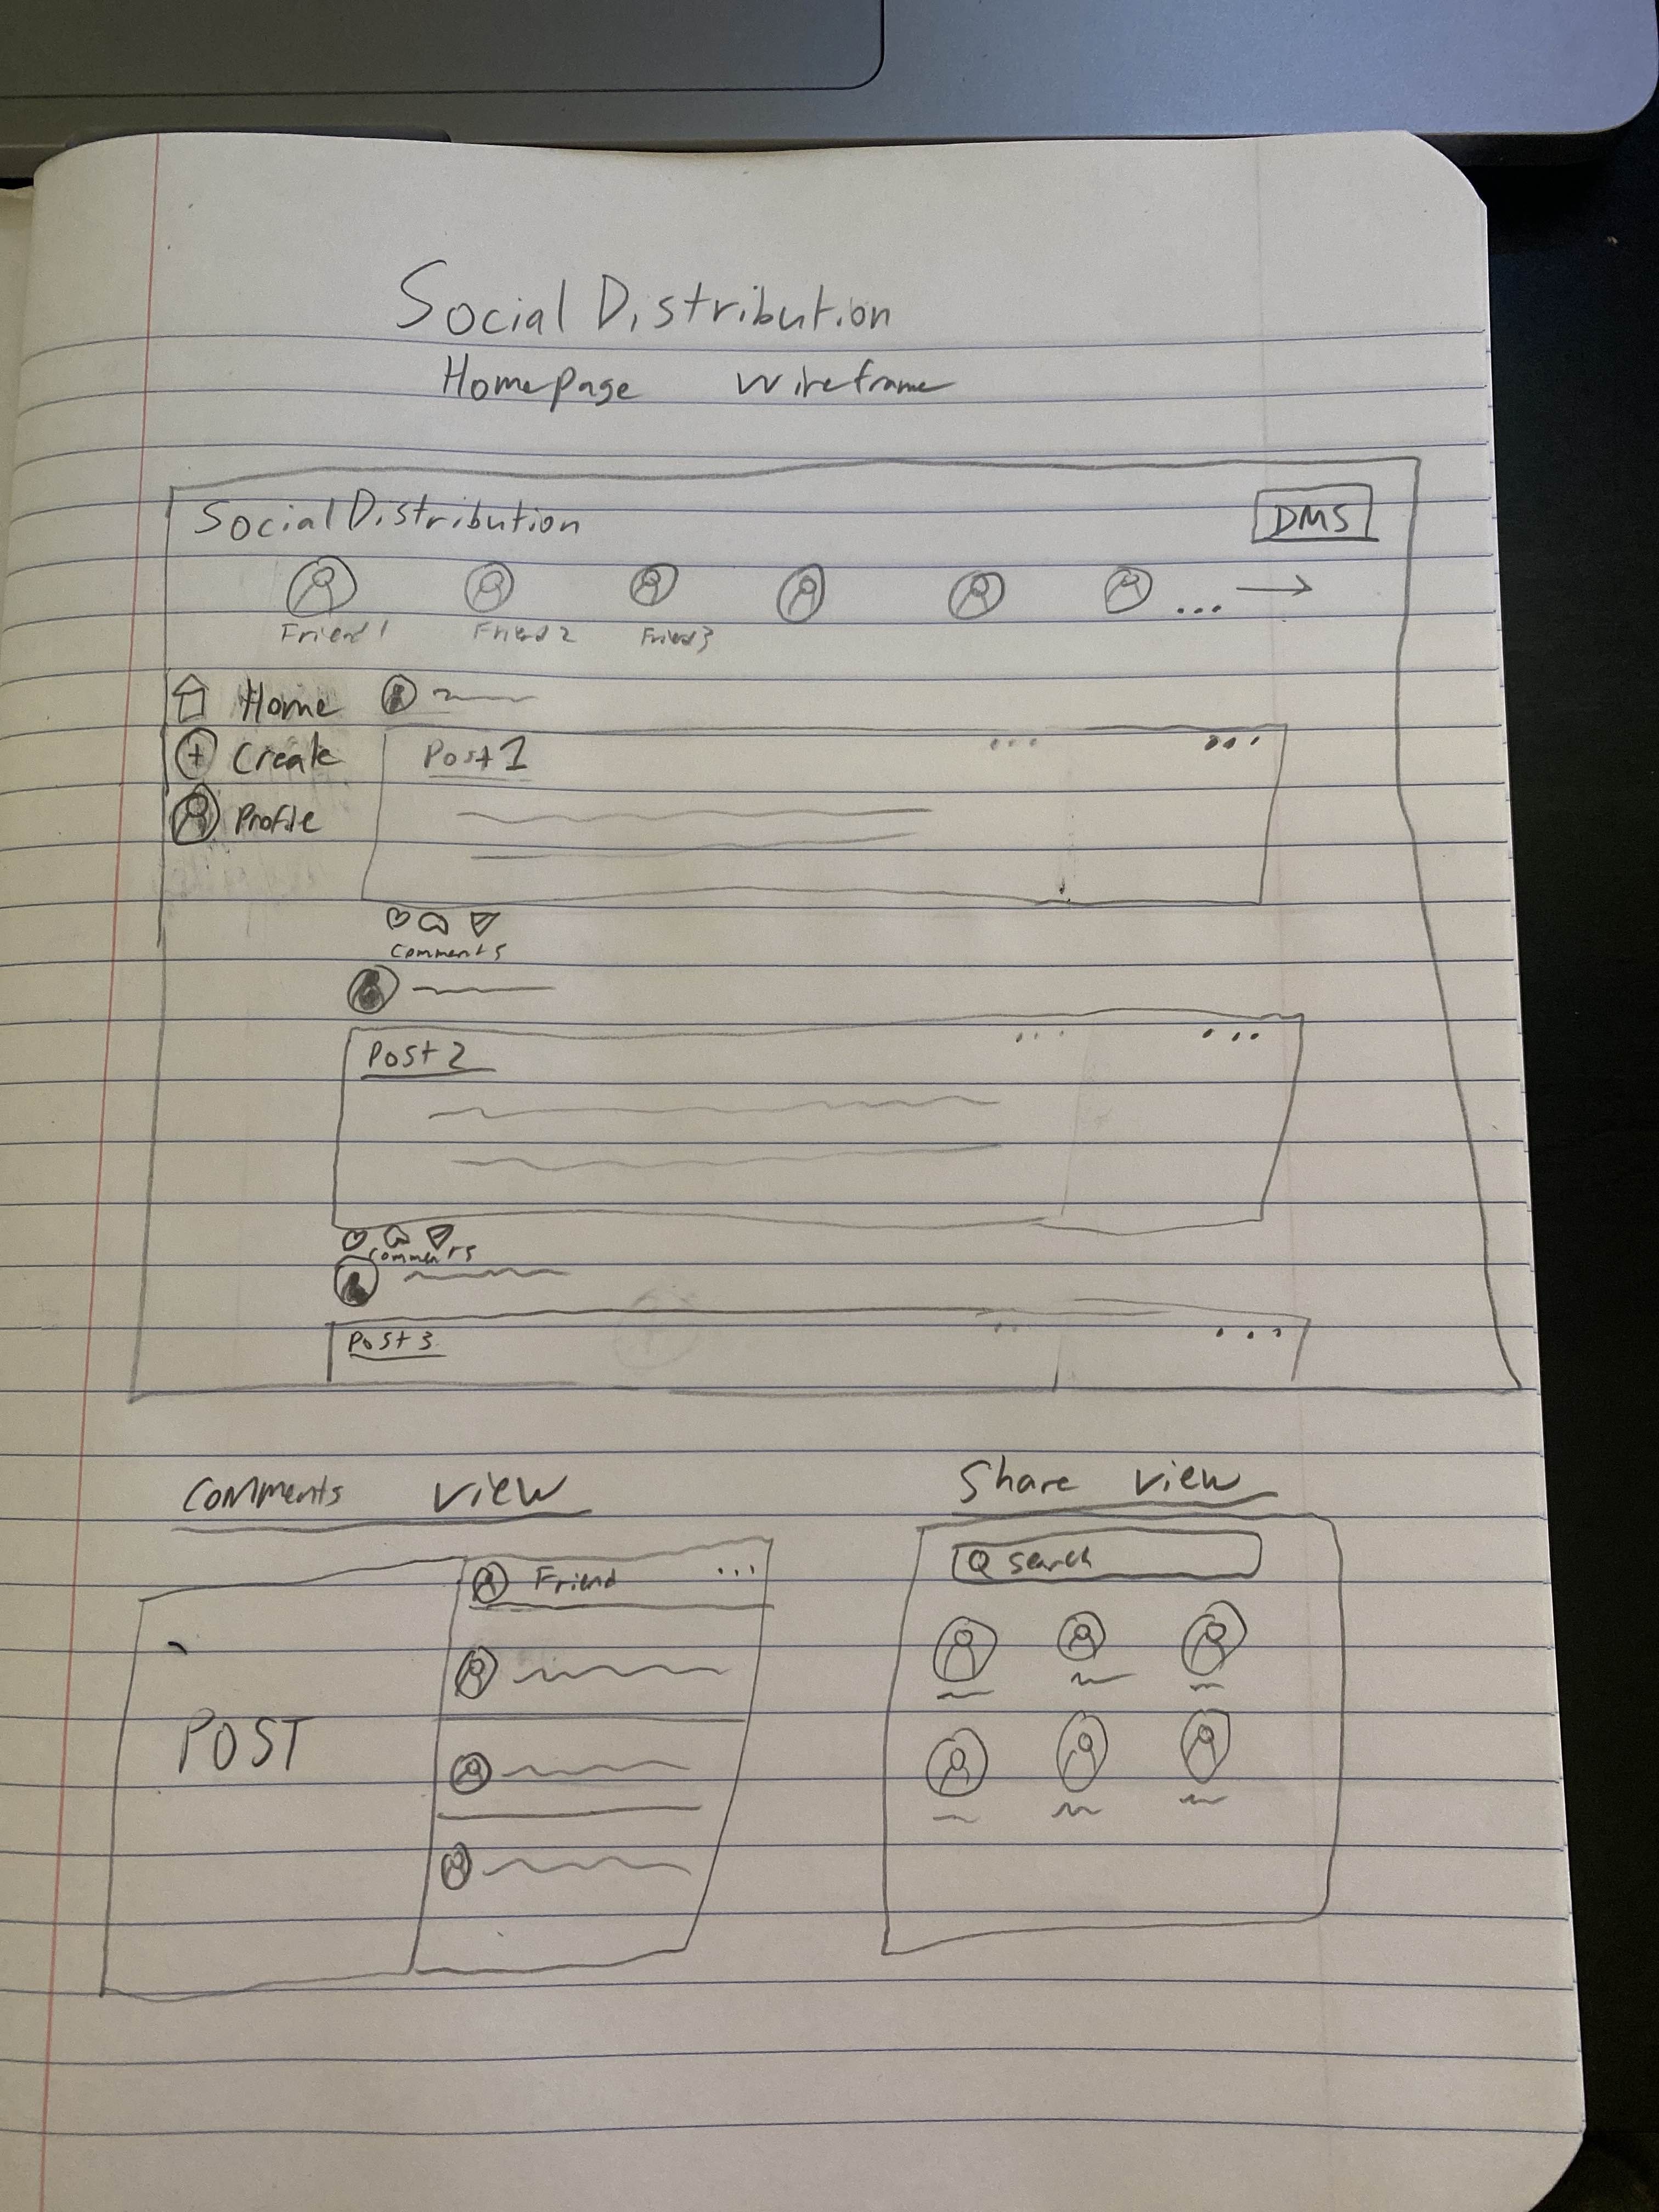 Social Distribution
Homepage Wireframe
Social Distribution DMS
Friend 1 Friend 2 Friend 3
Home
Create Post 1
Profile
Comments
Post 2
Comments
Post 3
Comments View
Share View
Friend
search
POST